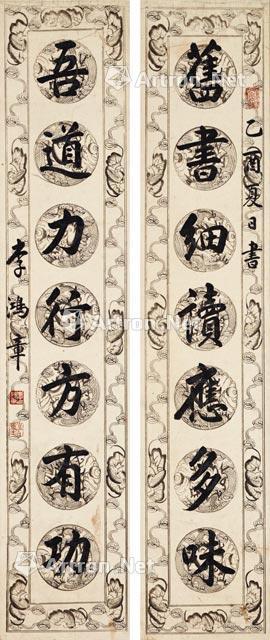 舊書細讀應多味
乙酉夏日書
吾道力行方有功
李鴻章
Artron.Net
Artron.Net